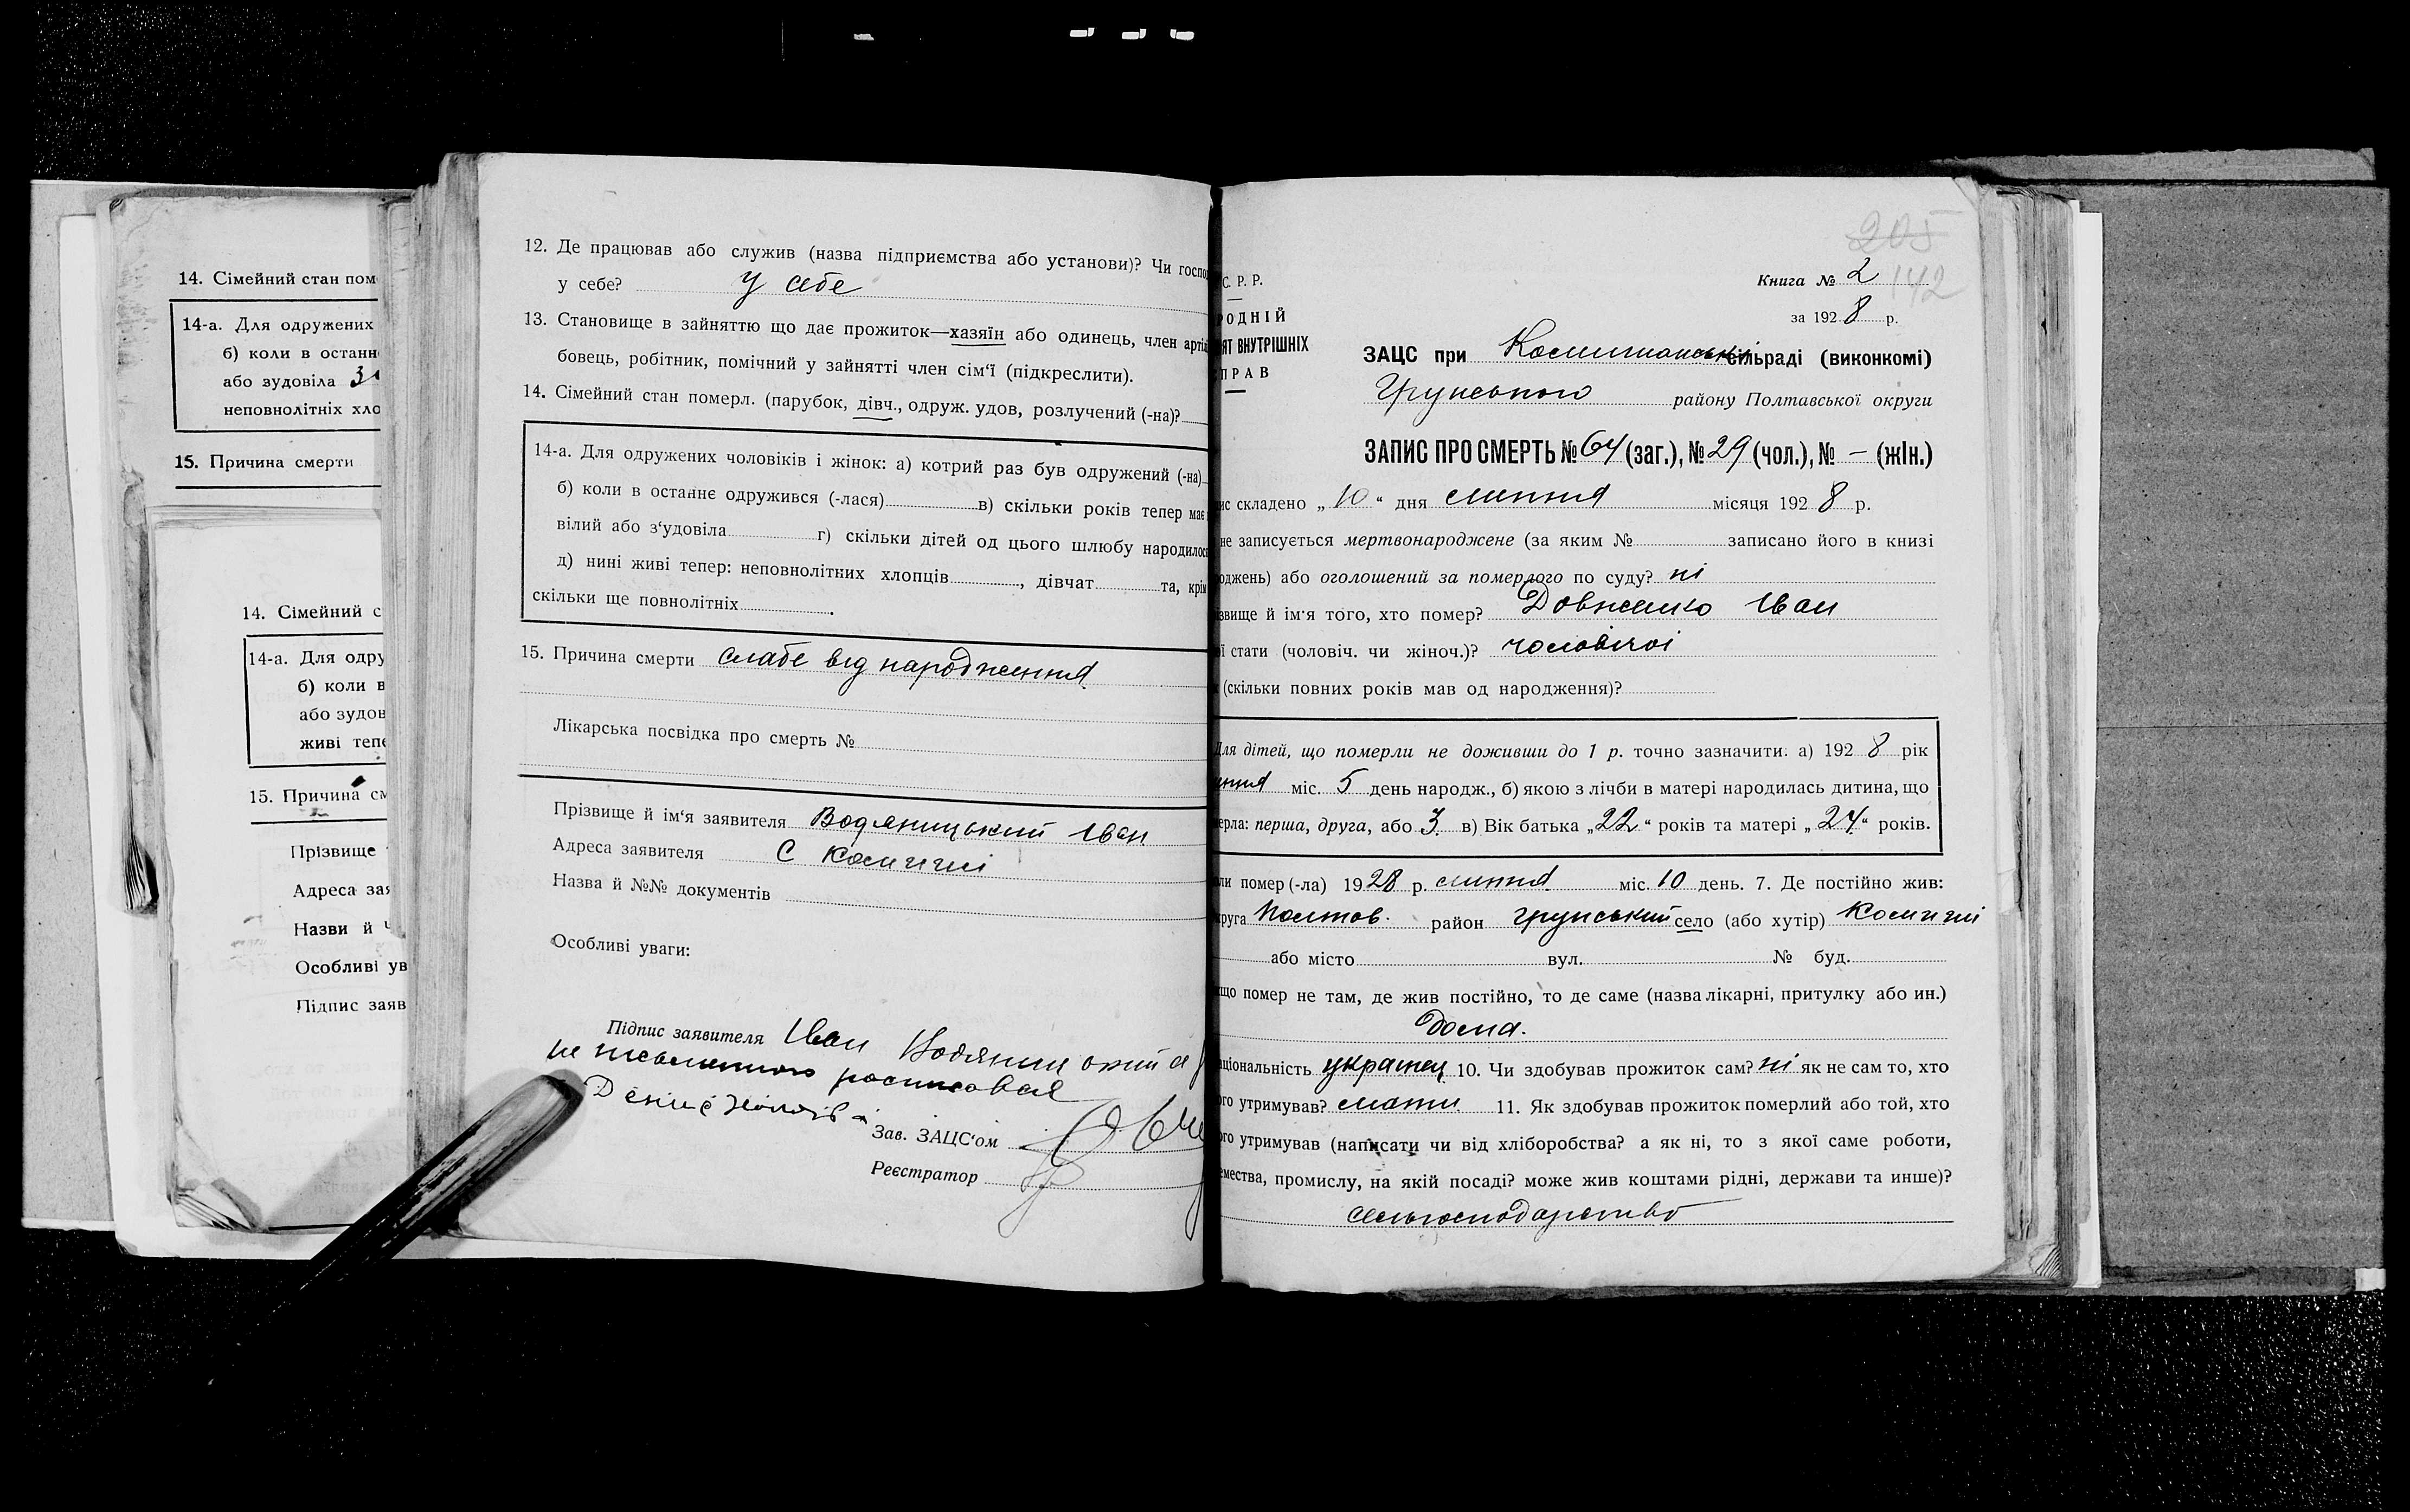 14. Сімейний стан пом
14-а. Для одружених
б) коли в останн
або зудовіла
неповнолітніх хло
15. Причина смерти
14. Сімейний с
14-а. Для одру
б) коли в
або зудов
живі тепе
15. Причина см
Прізвище
Адреса зая
Назви й
Особливі ув
Підпис заяв
12. Де працював або служив (назва підприємства або установи)? Чи госпо
у себе? у себе
13. Становище в зайняттю що дає прожиток—хазяїн або одинець, член арті
бовець, робітник, помічний у зайнятті член сім'ї (підкреслити).
14. Сімейний стан померл. (парубок, дівч., одруж. удов, розлучений (-на)?
14-а. Для одружених чоловіків і жінок: а) котрий раз був одружений (-на)
б) коли в останнє одружився (-лася) в) скільки років тепер має
вілий або з'удовіла г) скільки дітей од цього шлюбу народилос
д) нині живі тепер: неповнолітних хлопців , дівчат та, крім
скільки ще повнолітніх .
15. Причина смерти слабе від народження
Лікарська посвідка про смерть №
Прізвище й ім'я заявителя Водяницький Іван
Адреса заявителя С Комиші
Назва й №№ документів
Особливі уваги:
Підпис заявителя Іван
Зав. ЗАЦС'ом
Реєстратор
205
Книга № 2 142
за 1928 р.
С. Р. Р.
РОДНІЙ
ЯТ ВНУТРІШНІХ
ПРАВ
ЗАЦС при сільраді (виконкомі)
Грунського району Полтавської округи
ЗАПИС ПРО СМЕРТЬ № 64 (заг.), № 29 (чол.), № — (жін.)
ис складено „10“ дня липня місяця 1928 р.
не записується мертвонароджене (за яким № записано його в книзі
оджень) або оголошений за померлого по суду? ні
звище й ім'я того, хто помер? Довженко Іван
ої стати (чоловіч. чи жіноч.)? чоловічої
(скільки повних років мав од народження)?
Для дітей, що померли не доживши до 1 р. точно зазначити: а) 1928 рік
ипня міс. 5 день народж., б) якою з лічби в матері народилась дитина, що
мерла: перша, друга, або 3 в) Вік батька „22“ років та матері „24“ років.
ли помер (-ла) 1928 р. липня міс. 10 день. 7. Де постійно жив:
круга Полтов. район Грунський село (або хутір) Комиші
або місто вул. № буд.
що помер не там, де жив постійно, то де саме (назва лікарні, притулку або ин.)
дома.
аціональність українец 10. Чи здобував прожиток сам? ні як не сам то, хто
ого утримував? мати 11. Як здобував прожиток померлий або той, хто
ого утримував (написати чи від хліборобства? а як ні, то з якої саме роботи,
емества, промислу, на якій посаді? може жив коштами рідні, держави та инше)?
сельгосподарство